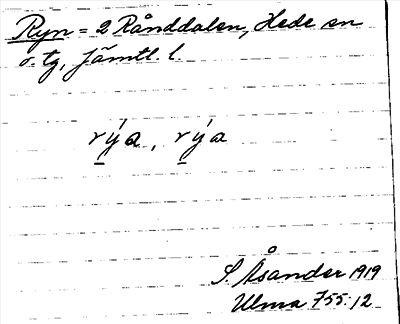 Ryn = 2 Rånddalen, Hede sn
o. tg, Jämtl. l.
rýa, rýa
S Åsander 1919
Ulma 755:12